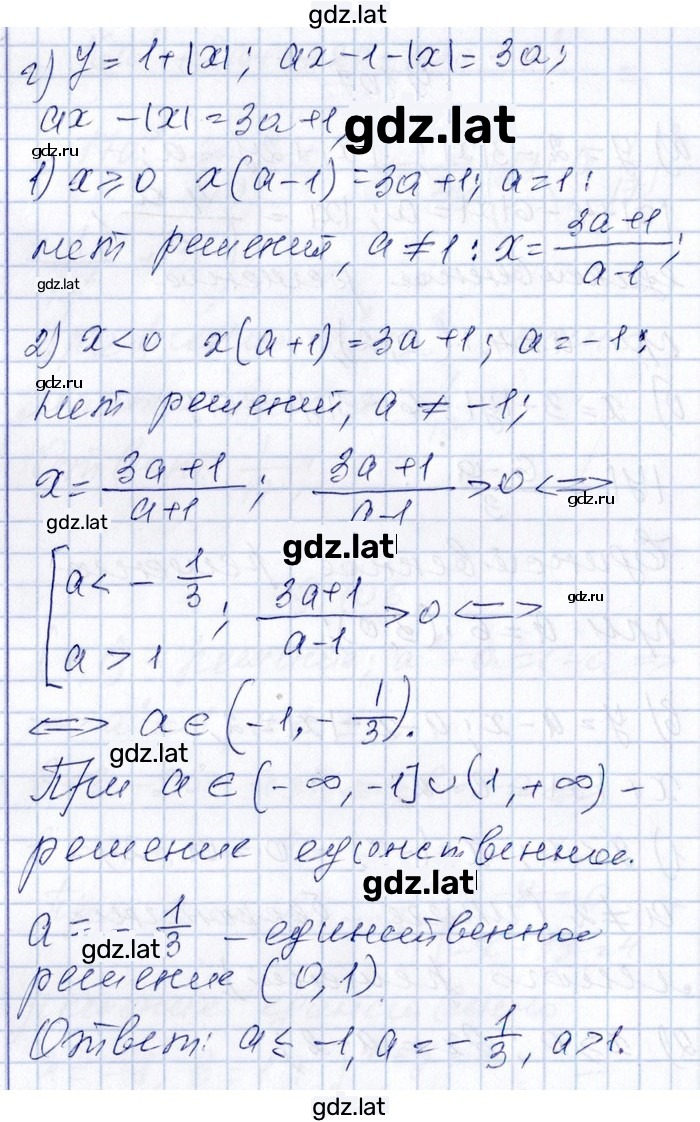 gdz.lat
г) y = 1+|x|; ax-1-|x| = 3a;
ax -|x| = 3a+1,
gdz.lat
gdz.ru
1) x ⩾ 0 x(a-1) = 3a+1; a=1:
нет решений, a ≠ 1: x = \frac{3a+1}{a-1};
gdz.lat
2) x < 0 x(a+1) = 3a+1; a = -1:
gdz.ru
нет решений, a ≠ -1;
x = \frac{3a+1}{a+1}; \frac{3a+1}{a-1} > 0 <=>
gdz.ru
gdz.lat
gdz.lat
[ a < -\frac{1}{3}
a > 1 ; \frac{3a+1}{a-1} > 0 <=>
gdz.ru
<=> a ∈ (-1, -\frac{1}{3}).
gdz.lat
При a ∈ (-∞, -1] ∪ (1, +∞) -
решение единственное.
gdz.lat
a = -\frac{1}{3} - единственное
gdz.lat
решение (0,1)
Ответ: a ≤ -1, a = -\frac{1}{3}, a>1.
gdz.lat